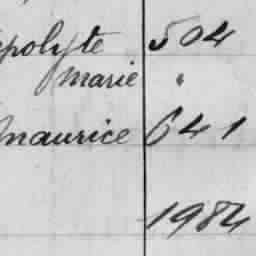 polyte 504
Marie "
Maurice 641
1984